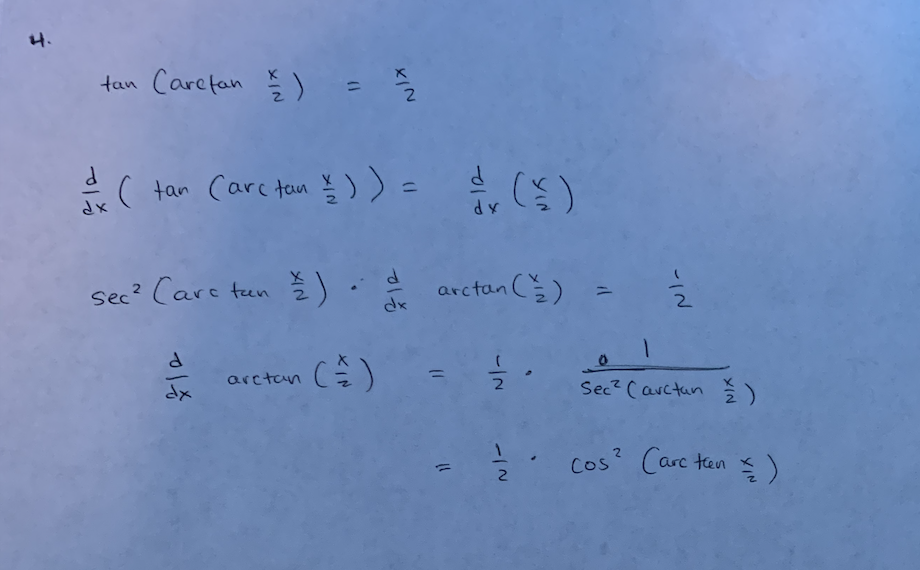 4.
tan (arctan x/2) = x/2
d/dx ( tan (arctan x/2)) = d/dx (x/2)
sec² (arctan x/2) · d/dx arctan(x/2) = 1/2
d/dx arctan (x/2) = 1/2 · 1/sec² (arctan x/2)
= 1/2 · cos² (arctan x/2)